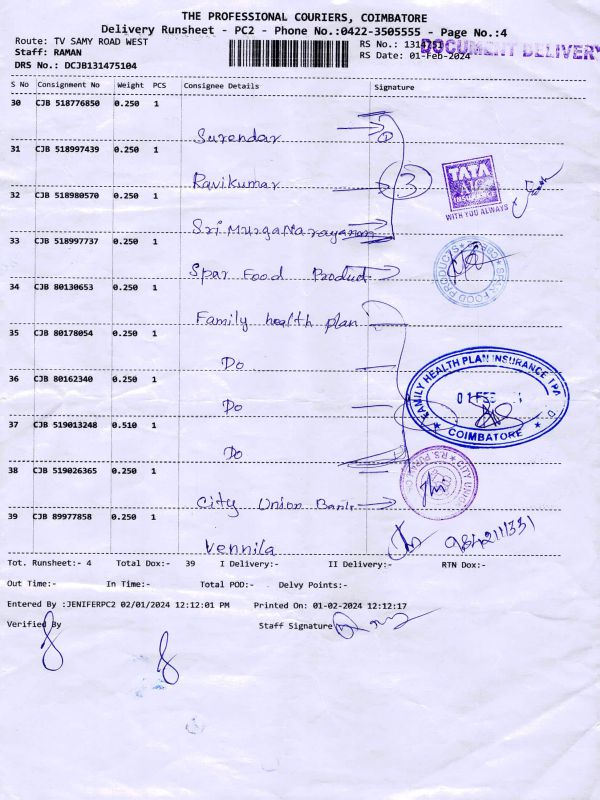 THE PROFESSIONAL COURIERS, COIMBATORE
Delivery Runsheet - PC2 - Phone No.:0422-3505555 - Page No.:4
Route: TV SAMY ROAD WEST
Staff: RAMAN
DRS No.: DCJB131475104
RS No.: 1314751
RS Date: 01-Feb-2024
DOCUMENT DELIVERY
S No Consignment No Weight PCS Consignee Details Signature
30 CJB 518776850 0.250 1
Surendar
31 CJB 518997439 0.250 1
Ravikumar 3
TATA AIA
WITH YOU ALWAYS
32 CJB 518980570 0.250 1
Sri Murgan
33 CJB 518997737 0.250 1
Spar Food Product
SPAR FOOD PRODUCTS
34 CJB 80130653 0.250 1
Family health plan
35 CJB 80178054 0.250 1
Do
36 CJB 80162340 0.250 1
Do
FAMILY HEALTH PLAN INSURANCE TPA
01 FEB
COIMBATORE
37 CJB 519013248 0.510 1
Do
38 CJB 519026365 0.250 1
City Union Bank
CITY UNION
R.S. PURAM
39 CJB 89977858 0.250 1
Vennila
Tot. Runsheet:- 4 Total Dox:- 39 I Delivery:- II Delivery:- RTN Dox:-
Out Time:- In Time:- Total POD:- Delvy Points:-
Entered By :JENIFERPC2 02/01/2024 12:12:01 PM Printed On: 01-02-2024 12:12:17
Verified By Staff Signature